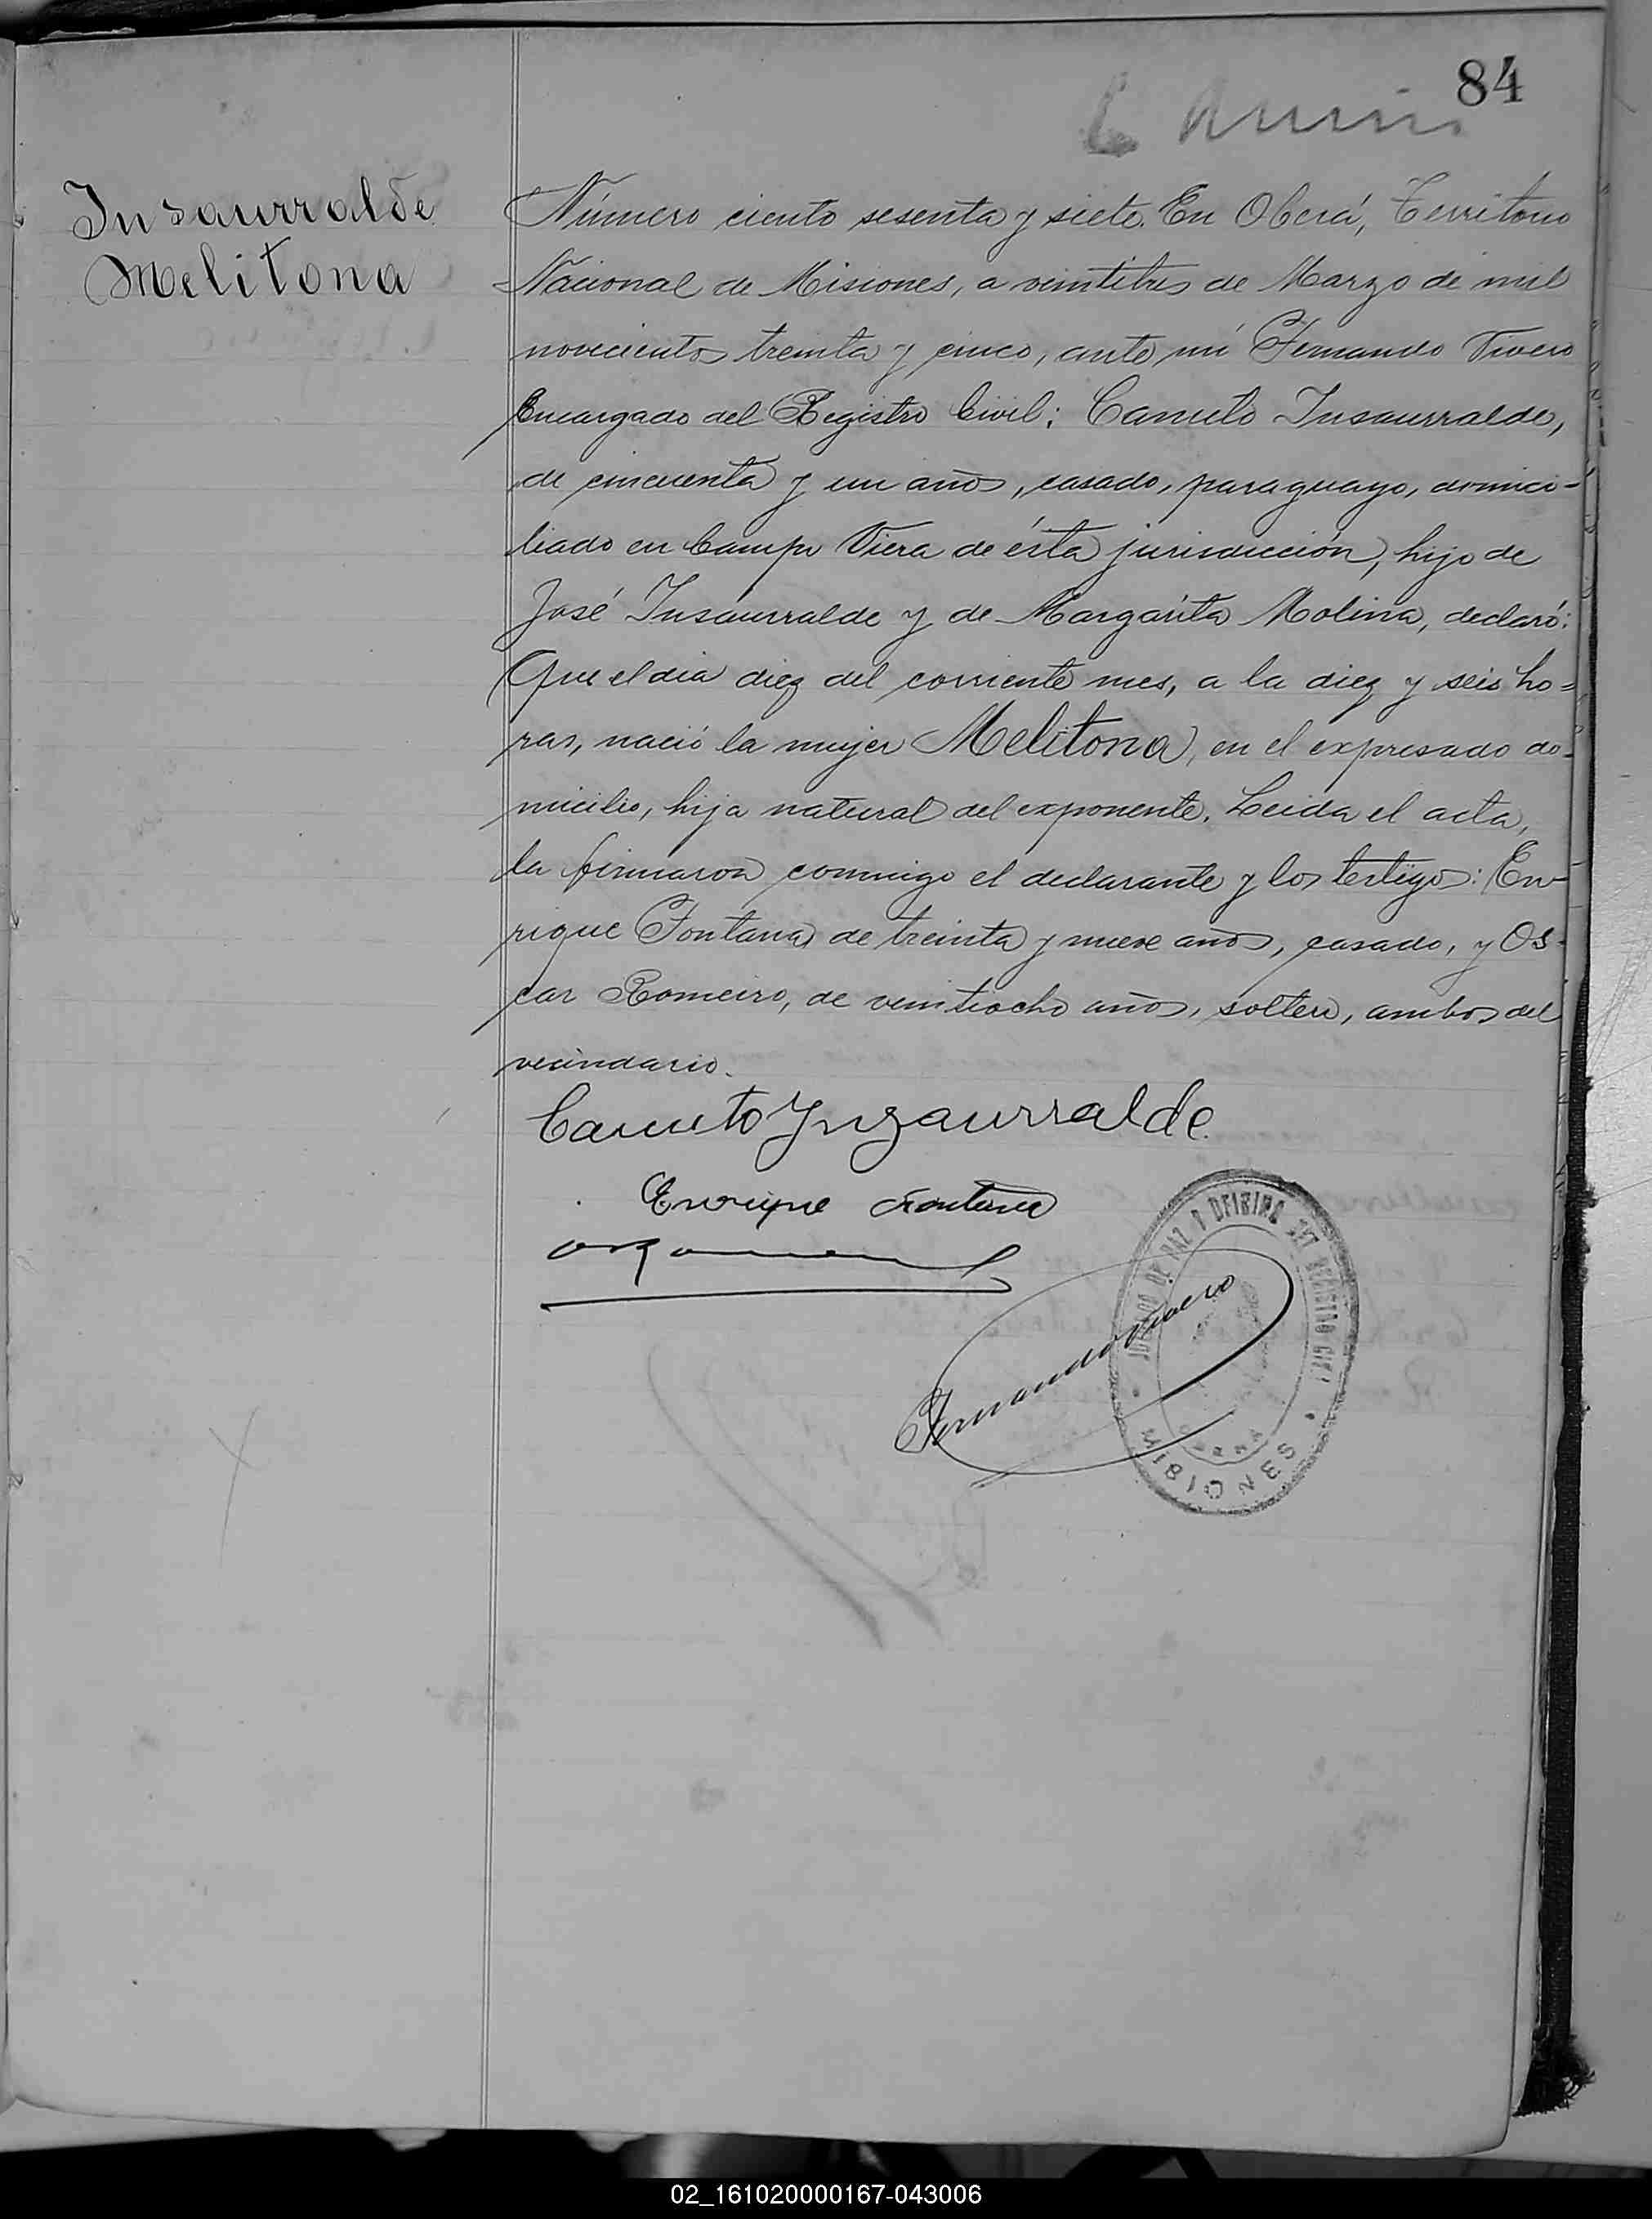 84
Insaurralde
Melitona
Número ciento sesenta y siete. En Oberá, Territorio
Nacional de Misiones, a veintitres de Marzo de mil
novecientos treinta y cinco, ante mí Fernando Vivero
Encargado del Registro Civil: Canuto Insaurralde,
de cincuenta y un años, casado, paraguayo, domici-
liado en Campo Viera de ésta jurisdicción, hijo de
José Insaurralde y de Margarita Molina, declaró:
Que el dia diez del corriente mes, a la diez y seis ho=
ras, nació la mujer Melitona, en el expresado do-
micilio, hija natural del exponente. Leida el acta,
la firmaron conmigo el declarante y los testigos: En-
rique Fontana, de treinta y nueve años, casado, y Os-
car Romeiro, de veintiocho años, soltero, ambos del
vecindario.
Canuto Ynzaurralde
Enrique Fontana
Fernando Vivero
JUZGADO DE PAZ Y OFICINA DEL REGISTRO CIVIL
MISIONES
02_161020000167-043006